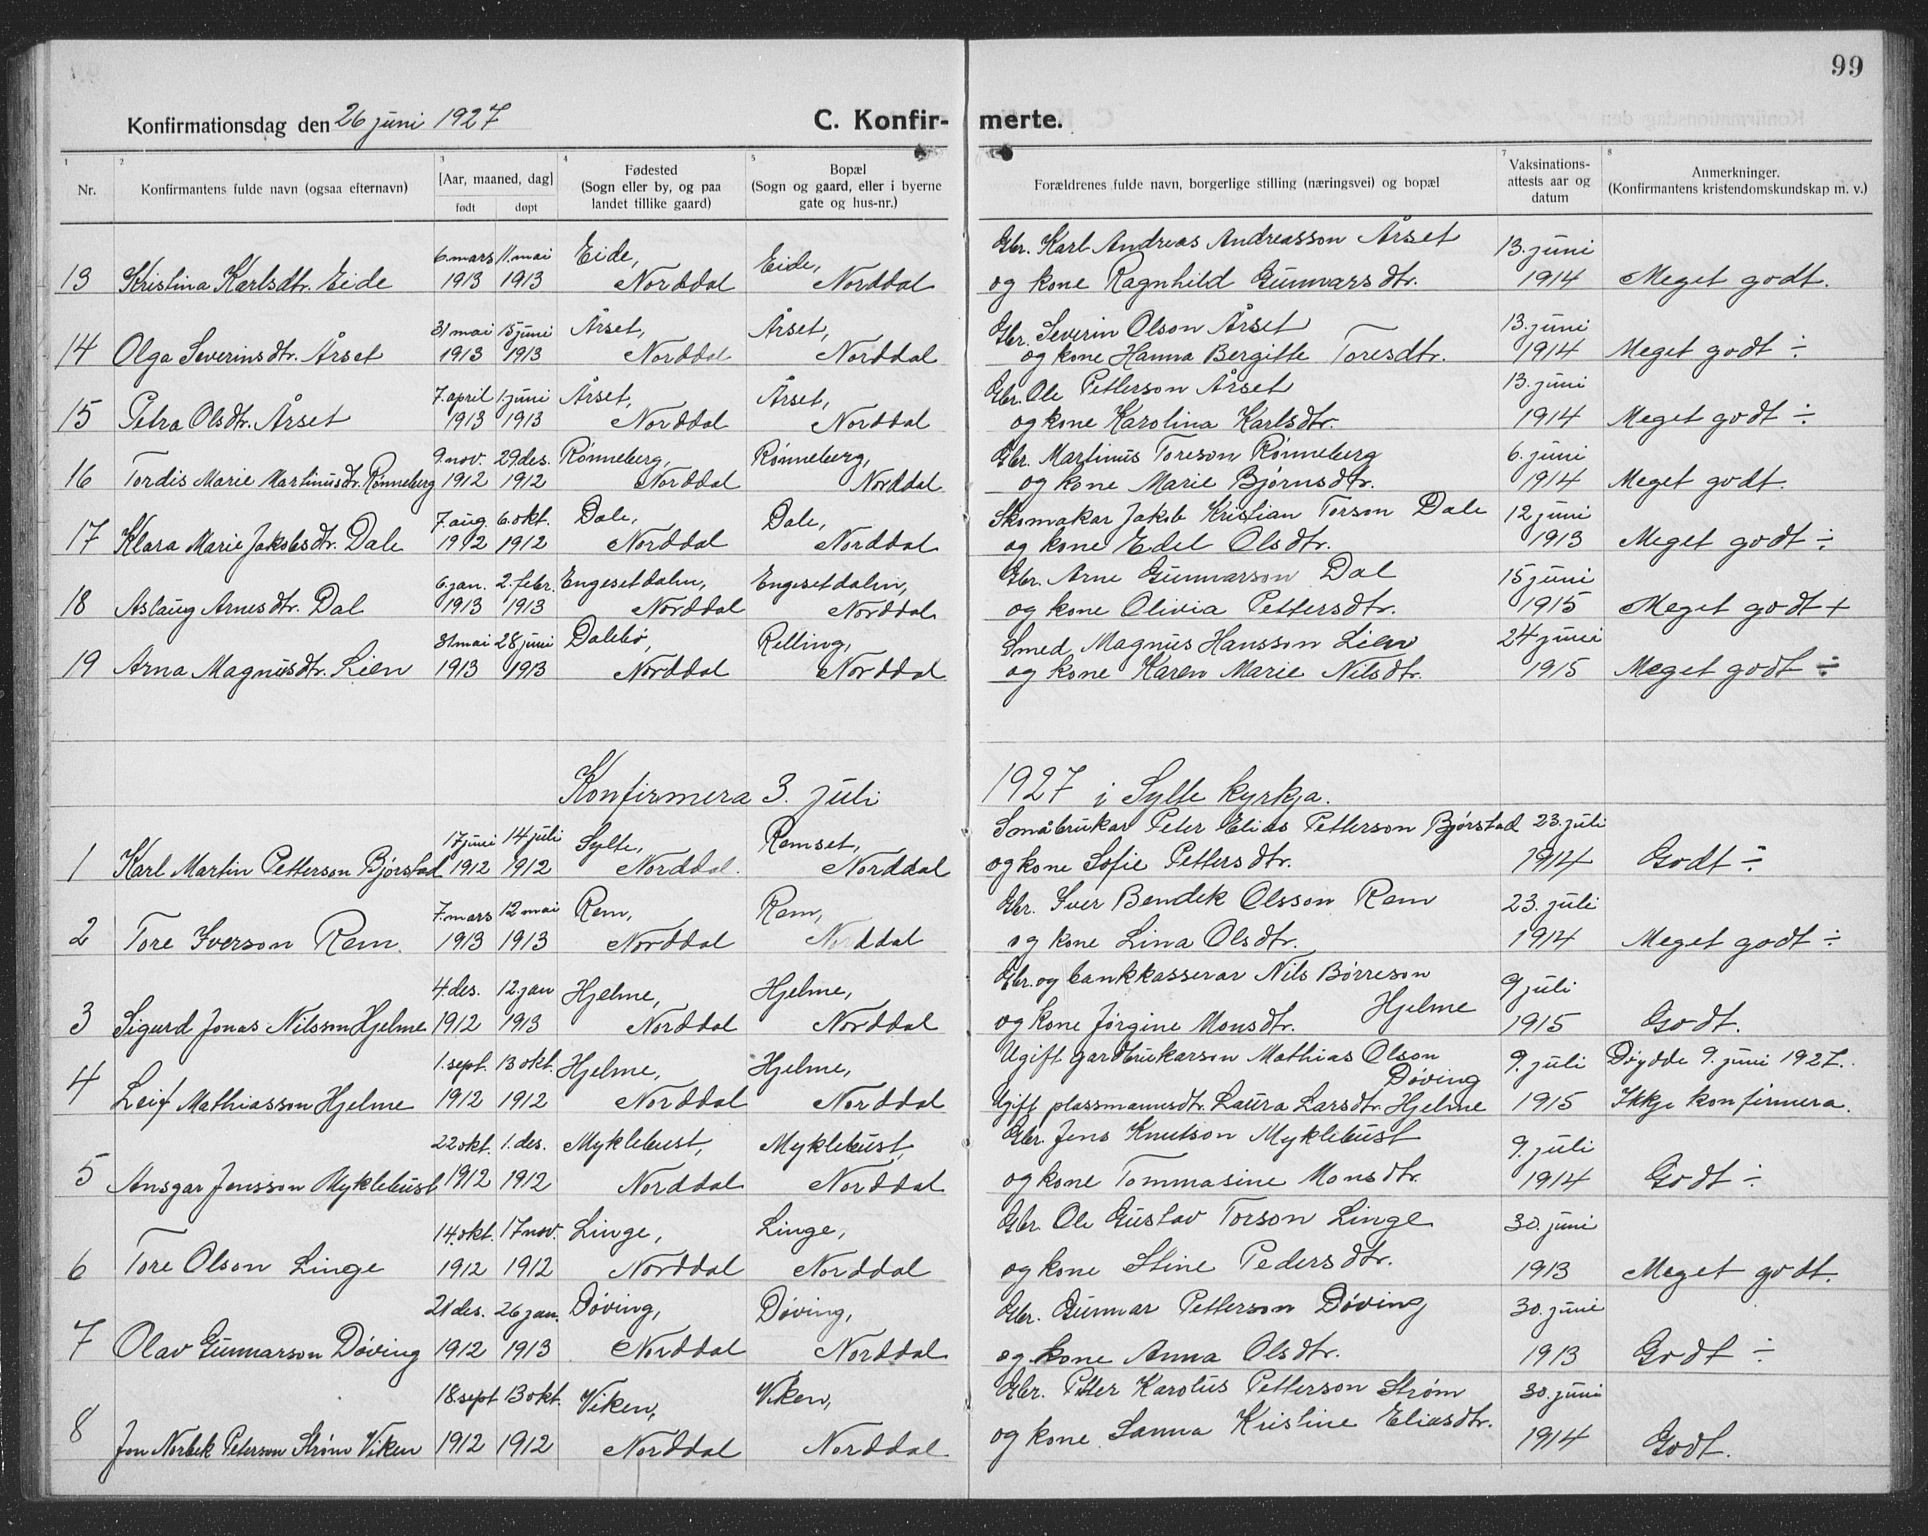 99
Konfirmationsdag den 26 juni 1927 C. Konfir- merte.
1 2 3 4 5 7 8
Nr. Konfirmantens fulde navn (ogsaa efternavn) [Aar, maaned, dag] født døpt Fødested (Sogn eller by, og paa landet tillike gaard) Bopæl (Sogn og gaard, eller i byerne gate og hus-nr.) Forældrenes fulde navn, borgerlige stilling (næringsvei) og bopæl Vaksinations-attests aar og datum Anmerkninger. (Konfirmantens kristendomskundskap m. v.)
6. mars 11. mai Eide, Eide, Gbr. Karl Andreas Andreasson Årset 13. juni
13 Kristina Karlsdtr. Eide 1913 1913 Norddal Norddal og kone Ragnhild Gunnarsdtr. 1914 Meget godt.
31 mai 15 juni Årset, Årset, Gbr. Severin Olson Årset 13. juni
14 Olga Severinsdtr. Årset 1913 1913 Norddal Norddal og kone Hanna Bergitte Toresdtr. 1914 Meget godt ÷
7. april 1. juni Årset, Årset, Gbr. Ole Petterson Årset 13. juni
15 Petra Olsdtr. Årset 1913 1913 Norddal Norddal og kone Karolina Karlsdtr. 1914 Meget godt ÷
9. nov. 29. des. Rønneberg, Rønneberg, Gbr. Martinus Toreson Rønneberg 6. juni
16 Tordis Marie Martinusdtr. Rønneberg 1912 1912 Norddal Norddal og kone Marie Bjørnsdtr. 1914 Meget godt.
7. aug. 6. okt. Dale, Dale, Skomakar Jakob Kristian Torson Dale 12 juni
17 Klara Marie Jakobsdtr. Dale 1912 1912 Norddal Norddal og kone Edel Olsdtr. 1913 Meget godt ÷
6. jan. 2. febr. Engesetdalen, Engesetdalen, Gbr. Arne Gunnarson Dal 15 juni
18 Aslaug Arnesdtr. Dal 1913 1913 Norddal Norddal og kone Olivia Pettersdtr. 1915 Meget godt +
31 mai 28 juni Dalebø, Relling, Smed Magnus Hansson Lien 24 juni
19 Arna Magnusdtr. Lien 1913 1913 Norddal Norddal og kone Karen Marie Nilsdtr. 1915 Meget godt ÷
Konfirmera 3. juli 1927 i Sylte kyrkja.
17 juni 14 juli Sylte, Remset, Småbrukar Peter Elias Petterson Bjørstad 23. juli
1 Karl Martin Petterson Bjørstad 1912 1912 Norddal. Norddal og kone Sofie Pettersdtr. 1914 Godt ÷
7. mars 12 mai Rem, Rem, Gbr. Iver Bendik Olsson Rem 23. juli
2 Tore Iverson Rem. 1913 1913 Norddal Norddal og kone Lina Olsdtr. 1914 Meget godt ÷
4. des. 12. jan Hjelme, Hjelme, Gbr. og bankkasserar Nils Børreson 9 juli
3 Sigurd Jonas Nilsson Hjelme 1912 1913 Norddal Norddal og kone Jørgine Monsdtr. Hjelme 1915 Godt.
1. sept. 13 okt. Hjelme, Hjelme, Ugift gardbrukarson Mathias Olson Døving 9. juli Døydde 9. juni 1927.
4 Leif Mathiasson Hjelme 1912 1912 Norddal Norddal Ugift plassmannsdtr. Laura Larsdtr. Hjelme 1915 Ikkje konfirmera.
22 okt. 1. des. Myklebust, Myklebust, Gbr. Jens Knutson Myklebust 9. juli
5 Ansgar Jensson Myklebust 1912 1912 Norddal Norddal og kone Tommasine Monsdtr. 1914 Godt ÷
14. okt. 17 nov. Linge, Linge, Gbr. Ole Gustav Torson Linge 30. juni
6 Tore Olson Linge 1912 1912 Norddal Norddal og kone Stine Pedersdtr. 1913 Meget godt.
21 des. 26 jan. Døving, Døving, Gbr. Gunnar Petterson Døving 30. juni
7 Olav Gunnarson Døving 1912 1913 Norddal Norddal og kone Anna Olsdtr. 1913 Godt ÷
18. sept 13 okt. Viken, Viken, Gbr. Peter Karolus Petterson Strøm 30. juni
8 Jon Norbek Peterson Strøm Viken 1912 1912 Norddal Norddal og kone Sanna Kristine Eliasdtr. 1914 Godt.